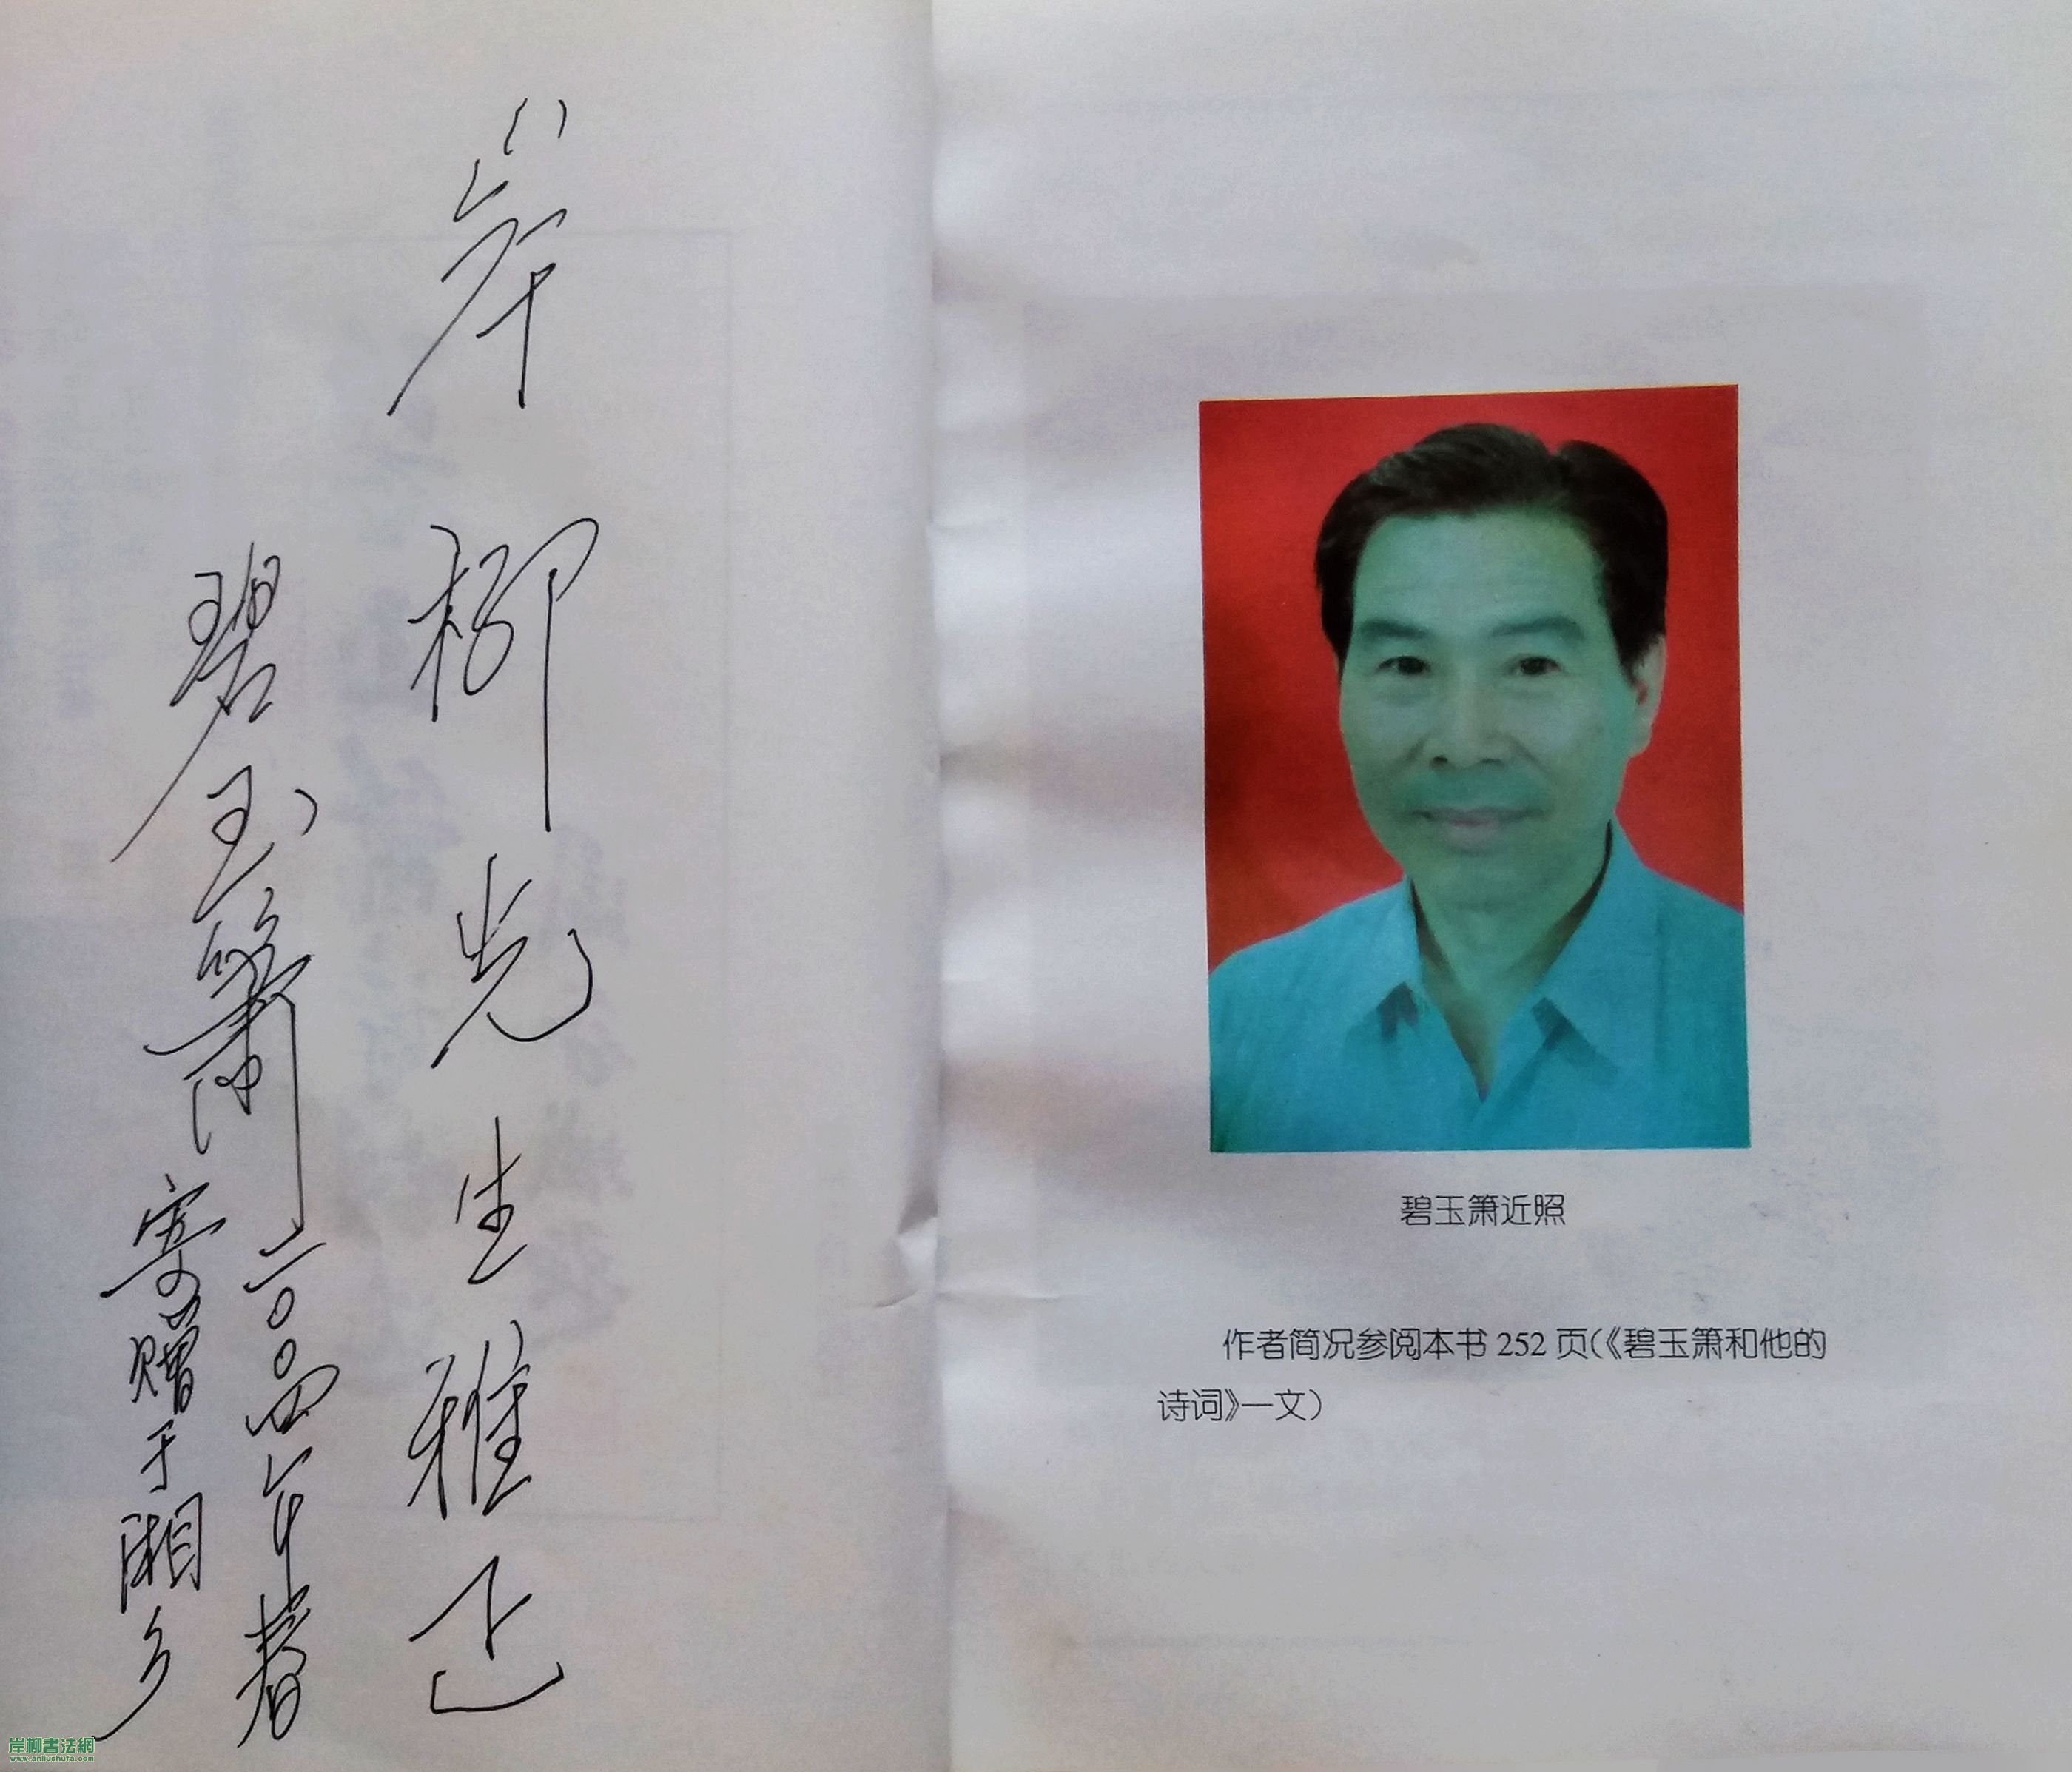 岸柳先生雅正
碧玉箫
二〇〇四年春
寄赠于湘乡
碧玉箫近照
作者简况参阅本书 252 页(《碧玉箫和他的
诗词》一文)
岸柳書法網
www.anliushufa.com